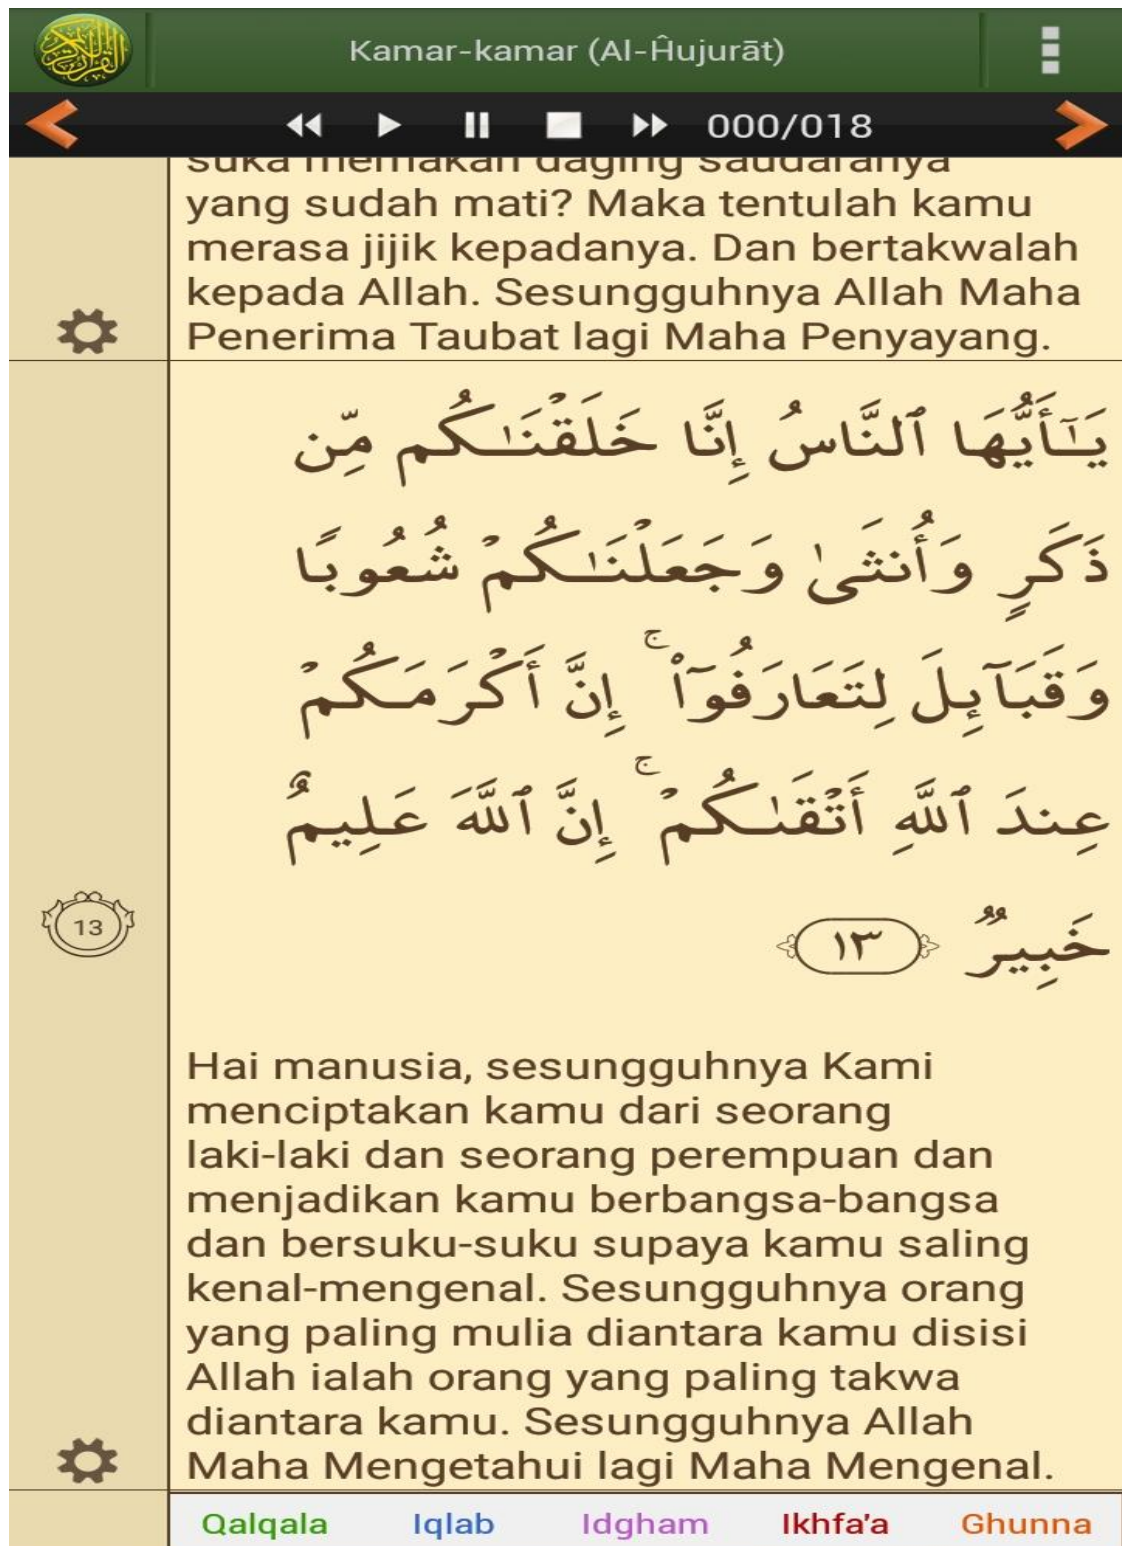 Kamar-kamar (Al-Ĥujurāt)
000/018
suka memakan daging saudaranya
yang sudah mati? Maka tentulah kamu
merasa jijik kepadanya. Dan bertakwalah
kepada Allah. Sesungguhnya Allah Maha
Penerima Taubat lagi Maha Penyayang.
يَـٰٓأَيُّهَا ٱلنَّاسُ إِنَّا خَلَقْنَـٰكُم مِّن
ذَكَرٍ وَأُنثَىٰ وَجَعَلْنَـٰكُمْ شُعُوبًا
وَقَبَآئِلَ لِتَعَارَفُوٓا۟ ۚ إِنَّ أَكْرَمَكُمْ
عِندَ ٱللَّهِ أَتْقَىٰكُمْ ۚ إِنَّ ٱللَّهَ عَلِيمٌ
خَبِيرٌ ١٣
13
Hai manusia, sesungguhnya Kami
menciptakan kamu dari seorang
laki-laki dan seorang perempuan dan
menjadikan kamu berbangsa-bangsa
dan bersuku-suku supaya kamu saling
kenal-mengenal. Sesungguhnya orang
yang paling mulia diantara kamu disisi
Allah ialah orang yang paling takwa
diantara kamu. Sesungguhnya Allah
Maha Mengetahui lagi Maha Mengenal.
Qalqala Iqlab Idgham Ikhfa'a Ghunna